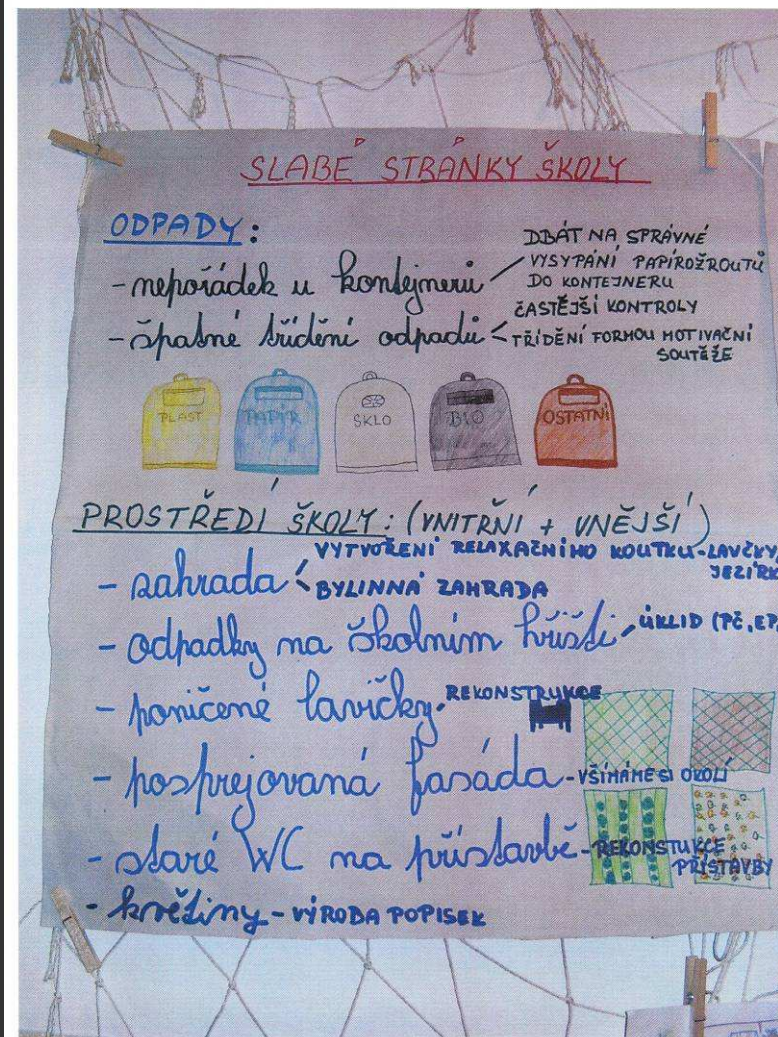 SLABÉ STRÁNKY ŠKOLY
ODPADY:
- nepořádek u kontejnerů
DBÁT NA SPRÁVNÉ
VYSYPÁNÍ PAPÍROŽROUTŮ
DO KONTEJNERU
- špatné třídění odpadů
ČASTĚJŠÍ KONTROLY
TŘÍDĚNÍ FORMOU MOTIVAČNÍ
SOUTĚŽE
PLAST PAPÍR SKLO BIO OSTATNÍ
PROSTŘEDÍ ŠKOLY: (VNITŘNÍ + VNĚJŠÍ)
- zahrada
VYTVOŘENÍ RELAXAČNÍHO KOUTKU-LAVIČKY,
JEZÍRK
BYLINNÁ ZAHRADA
- odpadky na školním hřišti
ÚKLID (PČ, EP
- poničené lavičky - REKONSTRUKCE
- posprejovaná fasáda - VŠÍMÁME SI OKOLÍ
- staré WC na přístavbě - REKONSTUKCE
PŘÍSTAVBY
- květiny - VÝROBA POPISEK